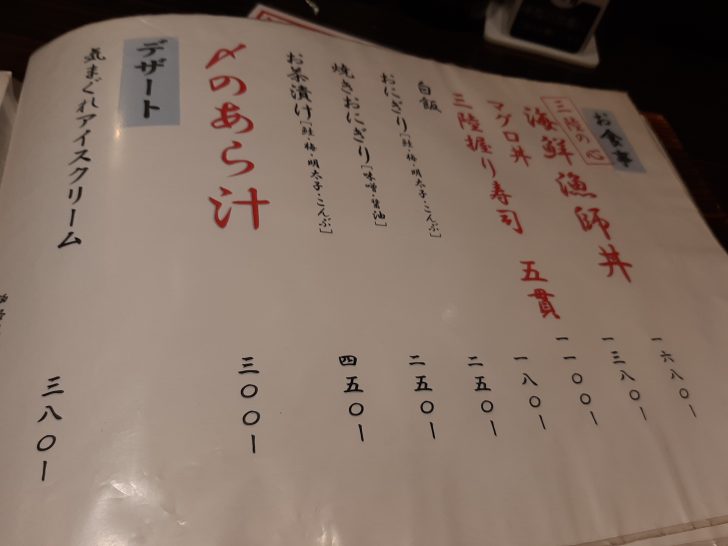 お食事
三陸の心
海鮮漁師丼 一六八〇ー
マグロ丼 一三八〇ー
三陸握り寿司 五貫 一一〇〇ー
白飯 一八〇ー
おにぎり[鮭・梅・明太子・こんぶ] 二五〇ー
焼きおにぎり[味噌・醤油] 二五〇ー
お茶漬け[鮭・梅・明太子・こんぶ] 四五〇ー
〆のあら汁 三〇〇ー
デザート
気まぐれアイスクリーム 三八〇ー